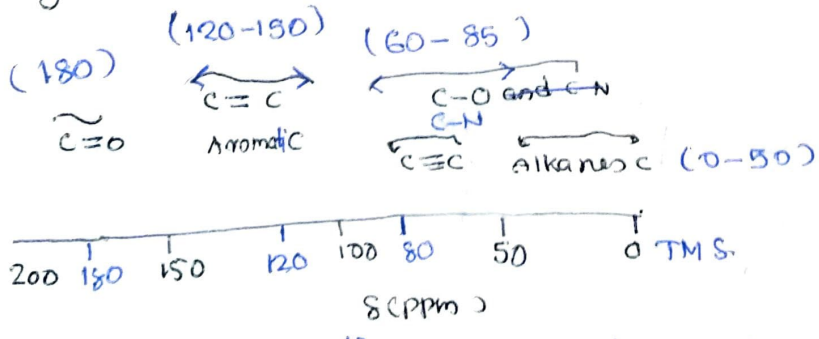 (180) (120-150) (60-85)
C=O C=C C-O and C-N
C-N
Aromatic C≡C Alkanes C (0-50)
200 180 150 120 100 80 50 0 TMS.
δ(ppm)